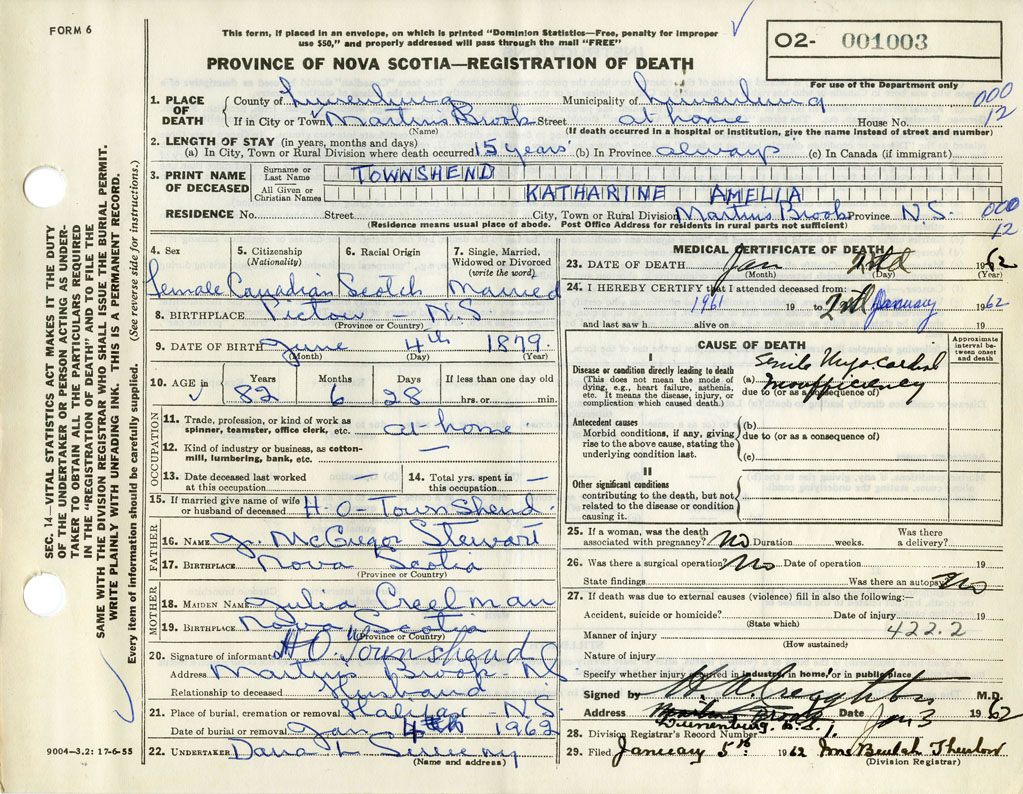 FORM 6
This form, if placed in an envelope, on which is printed "Dominion Statistics—Free, penalty for improper
use $50," and properly addressed will pass through the mail "FREE"
PROVINCE OF NOVA SCOTIA—REGISTRATION OF DEATH
O2- 001003
For use of the Department only
SEC. 14—VITAL STATISTICS ACT MAKES IT THE DUTY
OF THE UNDERTAKER OR PERSON ACTING AS UNDER-
TAKER TO OBTAIN ALL THE PARTICULARS REQUIRED
IN THE "REGISTRATION OF DEATH" AND TO FILE THE
SAME WITH THE DIVISION REGISTRAR WHO SHALL ISSUE THE BURIAL PERMIT.
WRITE PLAINLY WITH UNFADING INK. THIS IS A PERMANENT RECORD.
Every item of information should be carefully supplied. (See reverse side for instructions.)
1. PLACE OF DEATH
County of Lunenburg Municipality of Lunenburg 000
If in City or Town Martins Brook Street at home House No. 12
(Name) (If death occurred in a hospital or institution, give the name instead of street and number)
2. LENGTH OF STAY (in years, months and days)
(a) In City, Town or Rural Division where death occurred 15 years (b) In Province always (c) In Canada (if immigrant)
3. PRINT NAME OF DECEASED
Surname or Last Name TOWNSHEND
All Given or Christian Names KATHARINE AMELIA
RESIDENCE No. Street City, Town or Rural Division Martins Brook Province N.S. 000
(Residence means usual place of abode. Post Office Address for residents in rural parts not sufficient) 12
4. Sex 5. Citizenship (Nationality) 6. Racial Origin 7. Single, Married, Widowed or Divorced (write the word)
Female Canadian Scotch Married
8. BIRTHPLACE Pictou - N.S.
(Province or Country)
9. DATE OF BIRTH June 4th 1879
(Month) (Day) (Year)
10. AGE in Years Months Days If less than one day old
82 6 28 hrs. or min.
OCCUPATION
11. Trade, profession, or kind of work as spinner, teamster, office clerk, etc. at home
12. Kind of industry or business, as cotton-mill, lumbering, bank, etc. —
13. Date deceased last worked at this occupation — 14. Total yrs. spent in this occupation —
15. If married give name of wife or husband of deceased H-O-Townshend
FATHER
16. NAME J. McGregor Stewart
17. BIRTHPLACE Nova Scotia
(Province or Country)
MOTHER
18. MAIDEN NAME Julia Creelman
19. BIRTHPLACE Nova Scotia
(Province or Country)
20. Signature of informant H O Townshend
Address Martins Brook - NS
Relationship to deceased Husband
21. Place of burial, cremation or removal Halifax - N.S.
Date of burial or removal Jan 4th 1962
22. UNDERTAKER Dana L Sweeny
(Name and address)
9004—3.2: 17-6-55
MEDICAL CERTIFICATE OF DEATH
23. DATE OF DEATH Jan 2nd 1962
(Month) (Day) (Year)
24. I HEREBY CERTIFY that I attended deceased from:
1961 19 to 2nd January 1962
and last saw h alive on 19
CAUSE OF DEATH
Approximate interval between onset and death
I
Disease or condition directly leading to death
(This does not mean the mode of dying, e.g., heart failure, asthenia, etc. It means the disease, injury, or complication which caused death.)
(a) Senile Myocardial Insufficiency
due to (or as a consequence of)
Antecedent causes
Morbid conditions, if any, giving rise to the above cause, stating the underlying condition last.
(b)
due to (or as a consequence of)
(c)
II
Other significant conditions
contributing to the death, but not related to the disease or condition causing it.
25. If a woman, was the death associated with pregnancy? No Duration weeks. Was there a delivery?
26. Was there a surgical operation? No Date of operation 19
State findings Was there an autopsy? No
27. If death was due to external causes (violence) fill in also the following:—
Accident, suicide or homicide? Date of injury 19
(State which)
422.2
Manner of injury
(How sustained)
Nature of injury
Specify whether injury occurred in industry, in home, or in public place
Signed by H. A. Creighton M.D.
Address Martins Brook Date Jan 3 1962
Lunenburg N.S.
28. Division Registrar's Record Number 1
29. Filed January 5th 1962 Mrs Beulah Thurlow
(Division Registrar)